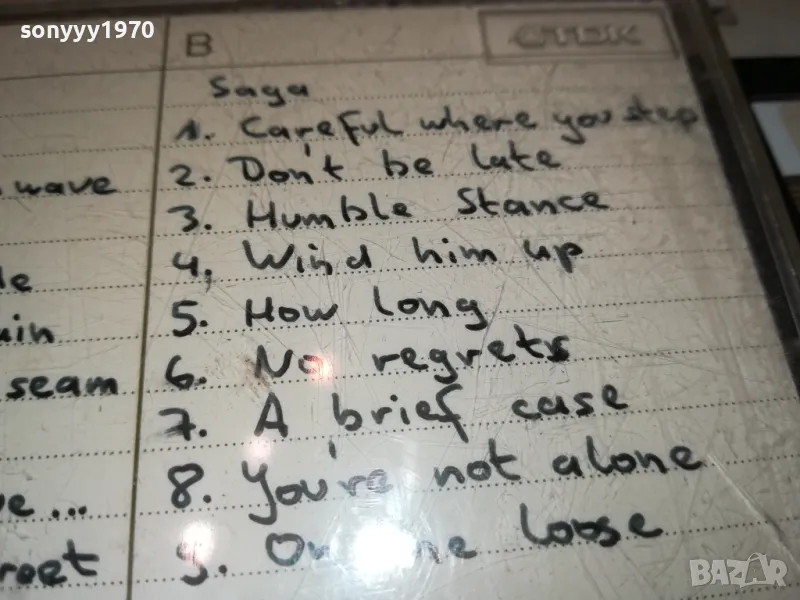 sonyyy1970
B
TDK
Saga
1. Careful where you step
wave
2. Don't be late
3. Humble Stance
4, Wind him up
5. How long
6. No regrets
seam
7. A brief case
8. You're not alone
9. On loose
BAZAR